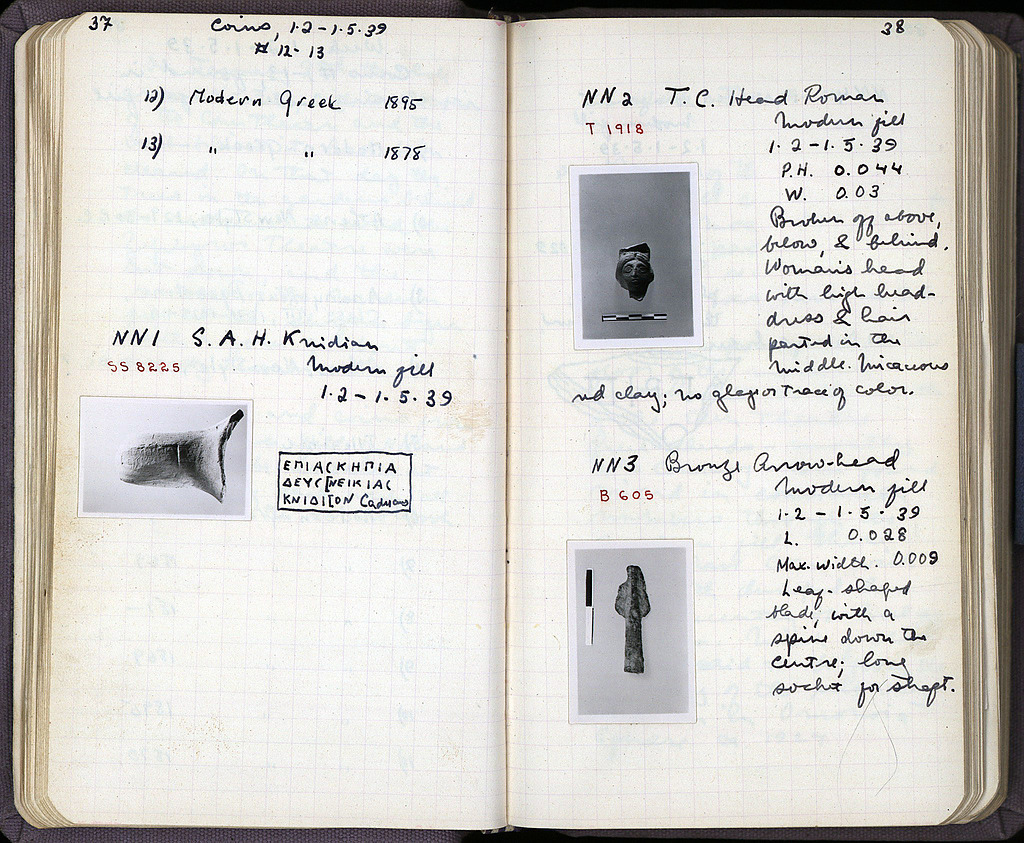 37
Coins, 1·2-1·5·39
# 12-13
12) Modern Greek 1895
13) " " 1878
NN1 S. A. H. Knidian
SS 8225
Modern fill
1·2-1·5·39
ΕΠΙΑϹΚΗΠΙΑ
ΔΕΥϹ[ΝΕΙΚΙΑϹ
ΚΝΙΔΙ[ΟΝ Caduceus
38
NN2 T.C. Head Roman
T 1918
Modern fill
1·2-1·5·39
P.H. 0.044
W. 0.03
Broken off above,
below, & behind.
Woman's head
with high head-
dress & hair
parted in the
middle. Micaceous
red clay; no glaze or trace of color.
NN3 Bronze Arrow-head
B 605
Modern fill
1·2-1·5·39
L. 0.028
Max. width. 0.009
Leaf-shaped
blade, with a
spine down the
centre; long
socket for shaft.